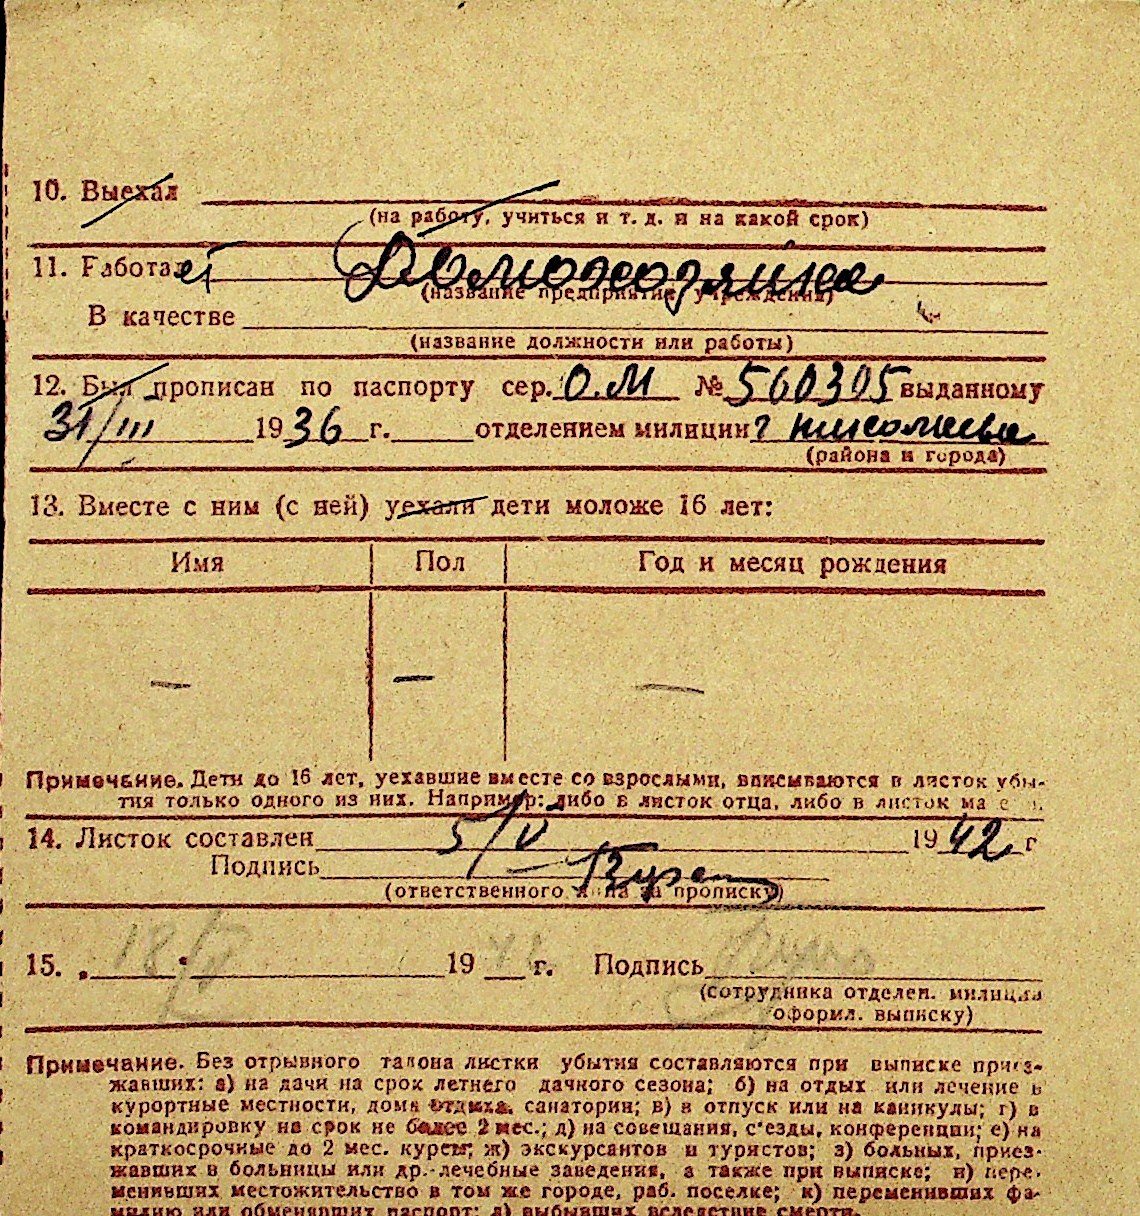 10. Выехал
(на работу, учиться и т. д. и на какой срок)
11. Работает Домохозяйка
(название предприятия, учреждения)
В качестве
(название должности или работы)
12. Был прописан по паспорту сер. О.М № 560305 выданному
31/III 1936 г. отделением милиции г
(района и города)
13. Вместе с ним (с ней) уехали дети моложе 16 лет:
Имя Пол Год и месяц рождения
— — —
Примечание. Дети до 16 лет, уехавшие вместе со взрослыми, вписываются в листок убы-
тия только одного из них. Например: либо в листок отца, либо в листок
14. Листок составлен 5/V 1942 г
Подпись
(ответственного лица за прописку)
15. 18/V 1942 г. Подпись
(сотрудника отделен. милиции
оформил. выписку)
Примечание. Без отрывного талона листки убытия составляются при выписке приез-
жавших: а) на дачи на срок летнего дачного сезона; б) на отдых или лечение в
курортные местности, дома отдыха, санатории; в) в отпуск или на каникулы; г) в
командировку на срок не более 2 мес.; д) на совещания, с'езды, конференции; е) на
краткосрочные до 2 мес. курсы; ж) экскурсантов и туристов; з) больных, приез-
жавших в больницы или др. лечебные заведения, а также при выписке; и) пере-
менивших местожительство в том же городе, раб. поселке; к) переменивших фа-
милию или обменявших паспорт; л) выбывших вследствие смерти.